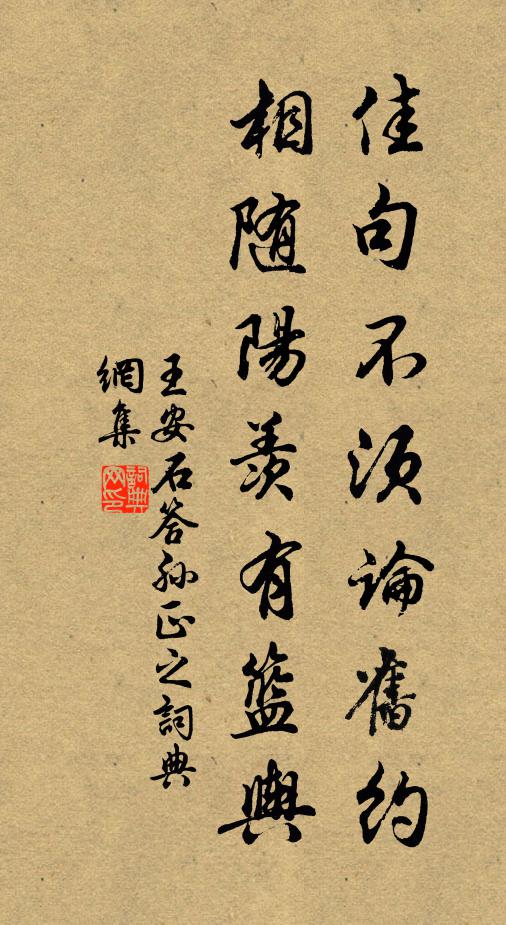 佳句不須論舊約
相随陽羨有籃輿
王安石答孫正之詞典
網集
詞典
网印